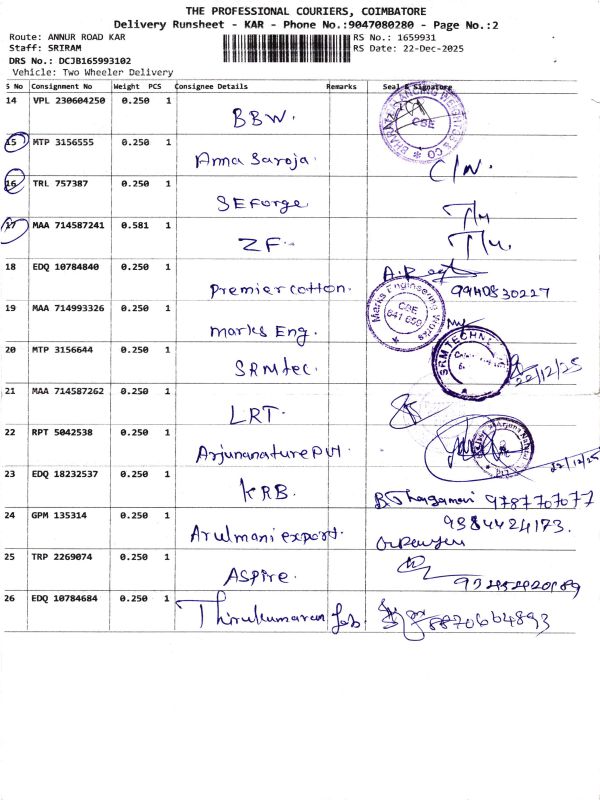 THE PROFESSIONAL COURIERS, COIMBATORE
Delivery Runsheet - KAR - Phone No.:9047080280 - Page No.:2
Route: ANNUR ROAD KAR RS No.: 1659931
Staff: SRIRAM RS Date: 22-Dec-2025
DRS No.: DCJB165993102
Vehicle: Two Wheeler Delivery
S No Consignment No Weight PCS Consignee Details Remarks Seal & Signature
14 VPL 230604250 0.250 1 BBW. CBE
15 MTP 3156555 0.250 1 Anna Saroja. C/N.
16 TRL 757387 0.250 1 SEForge T/M
17 MAA 714587241 0.581 1 ZF. T/M.
18 EDQ 10784840 0.250 1 Premier cotton. 9940830227
Marks Engineering Works
CBE
641 659
19 MAA 714993326 0.250 1 Marks Eng.
20 MTP 3156644 0.250 1 SRMtec. SRM TECHN 22/12/25
21 MAA 714587262 0.250 1 LRT.
22 RPT 5042538 0.250 1 Arjunanature Pvt 22/12/25
23 EDQ 18232537 0.250 1 KRB. 9787707077
24 GPM 135314 0.250 1 Arulmani export. 9384424173.
25 TRP 2269074 0.250 1 ASPire.
26 EDQ 10784684 0.250 1 Thirukumaran 8870664893